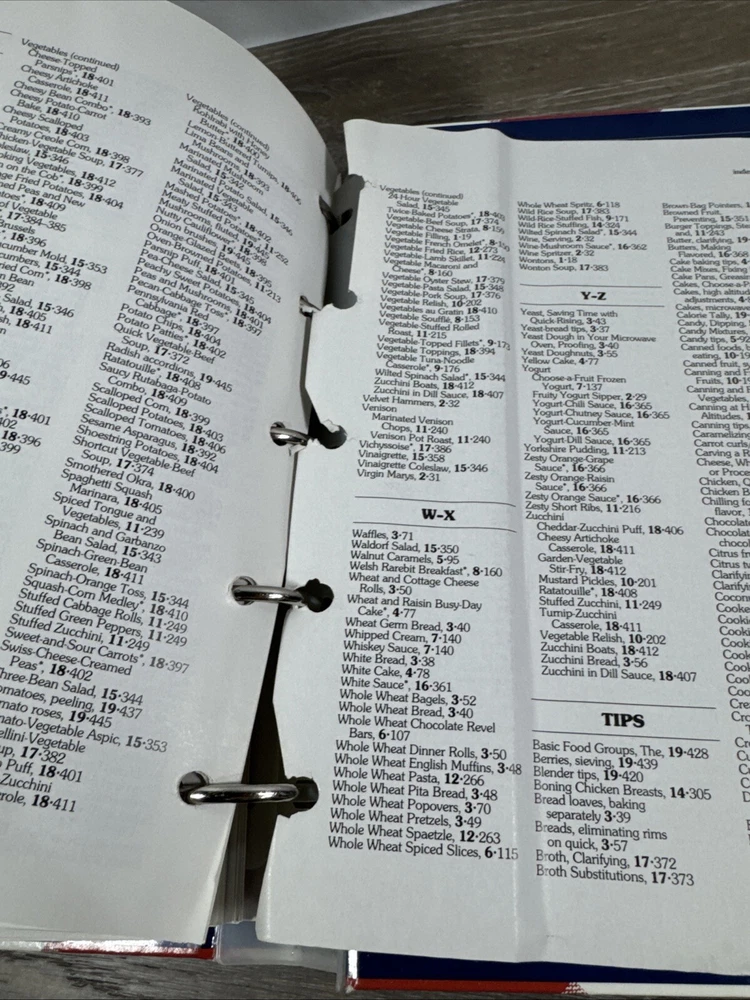 Vegetables (continued)
Cheese-Topped
Parsnips*, 18·401
Cheesy Artichoke
Casserole, 18·411
Cheesy Bean Combo*, 18·393
Cheesy Potato-Carrot
Bake, 18·410
Scalloped
Potatoes, 18·403
Creamy Creole Corn, 18·398
Chicken-Vegetable Soup, 17·377
15·346
Vegetables, 18·412
on the Cob*, 18·399
Fried Potatoes, 18·404
Peas and New
18·409
of Vegetable
17·384-385
Brussels
18·396
Mold, 15·353
15·344
Corn*, 18·398
Bean
Salad, 15·346
18·405
18·411
9·445
18·401
18·396
Three-Bean Salad, 15·344
peeling, 19·437
roses, 19·445
Aspic, 15·353
17·382
Puff, 18·401
Zucchini
18·411
Vegetables (continued)
Kohlrabi with Honey
Butter*, 18·400
Lemon-Buttered Turnips, 18·406
Lima Beans and
Marinated Mushroom
Salad, 15·343
Marinated Potato Salad, 15·346
Marinated Vegetable
Salad, 15·343
Mashed Potatoes*, 18·402
Meaty Stuffed Potatoes*
Mushrooms, fluted, 19·441
Nutty Cauliflower
Onion Bake, 18·396
Orange-Glazed Beets, 18·395
Oven-Browned Potatoes, 18·404
Parsnip Puff, 18·401
Pea-Cheese Salad, 15·345
Peachy Sweet Potatoes, 18·404
Peas and Mushrooms, 18·401
Pecan-Cabbage Toss*, 18·397
Pennsylvania Red
Cabbage*, 18·397
Potato Chips, 18·404
Potato Patties*, 18·402
Quick Vegetable-Beef
Soup, 17·372
Radish accordions, 19·445
Ratatouille*, 18·408
Saucy Rutabaga-Potato
Combo, 18·409
Scalloped Corn, 18·399
Scalloped Potatoes, 18·403
Scalloped Tomatoes, 18·406
Sesame Asparagus, 18·392
Shoestring Potatoes, 18·404
Shortcut Vegetable-Beef
Soup, 17·374
Smothered Okra, 18·400
Spaghetti Squash
Marinara, 18·405
Spiced Tongue and
Vegetables, 11·239
Spinach and Garbanzo
Bean Salad, 15·343
Spinach-Green-Bean
Casserole, 18·411
Spinach-Orange Toss, 15·344
Squash-Corn Medley*, 18·410
Stuffed Cabbage Rolls, 11·249
Stuffed Green Peppers, 11·249
Stuffed Zucchini, 11·249
Sweet-and-Sour Carrots*, 18·397
Swiss-Cheese-Creamed
Peas*, 18·402
Vegetables (continued)
24-Hour Vegetable
Salad, 15·345
Twice-Baked Potatoes*, 18·403
Vegetable Cheese Strata, 8·156
Vegetable Filling, 1·19
Vegetable French Omelet*, 8·150
Vegetable Fried Rice, 12·273
Vegetable-Lamb Skillet, 11·224
Vegetable Macaroni and
Cheese*, 8·160
Vegetable Oyster Stew, 17·379
Vegetable-Pasta Salad, 15·348
Vegetable-Pork Soup, 17·376
Vegetable Relish, 10·202
Vegetables au Gratin 18·410
Vegetable Soufflé, 8·153
Vegetable-Stuffed Rolled
Roast, 11·215
Vegetable-Topped Fillets*, 9·173
Vegetable Toppings, 18·394
Vegetable Tuna-Noodle
Casserole*, 9·176
Wilted Spinach Salad*, 15·344
Zucchini Boats, 18·412
Zucchini in Dill Sauce, 18·407
Velvet Hammers, 2·32
Venison
Marinated Venison
Chops, 11·240
Venison Pot Roast, 11·240
Vichyssoise*, 17·386
Vinaigrette, 15·358
Vinaigrette Coleslaw, 15·346
Virgin Marys, 2·31
W-X
Waffles, 3·71
Waldorf Salad, 15·350
Walnut Caramels, 5·95
Welsh Rarebit Breakfast*, 8·160
Wheat and Cottage Cheese
Rolls, 3·50
Wheat and Raisin Busy-Day
Cake*, 4·77
Wheat Germ Bread, 3·40
Whipped Cream, 7·140
Whiskey Sauce, 7·140
White Bread, 3·38
White Cake, 4·78
White Sauce*, 16·361
Whole Wheat Bagels, 3·52
Whole Wheat Bread, 3·40
Whole Wheat Chocolate Revel
Bars, 6·107
Whole Wheat Dinner Rolls, 3·50
Whole Wheat English Muffins, 3·48
Whole Wheat Pasta, 12·266
Whole Wheat Pita Bread, 3·48
Whole Wheat Popovers, 3·70
Whole Wheat Pretzels, 3·49
Whole Wheat Spaetzle, 12·263
Whole Wheat Spiced Slices, 6·115
Whole Wheat Spritz, 6·118
Wild Rice Soup, 17·383
Wild Rice-Stuffed Fish, 9·171
Wild Rice Stuffing, 14·324
Wilted Spinach Salad*, 15·344
Wine, Serving, 2·32
Wine-Mushroom Sauce*, 16·362
Wine Spritzer, 2·32
Wontons, 1·18
Wonton Soup, 17·383
Y-Z
Yeast, Saving Time with
Quick-Rising, 3·43
Yeast-bread tips, 3·37
Yeast Dough in Your Microwave
Oven, Proofing, 3·40
Yeast Doughnuts, 3·55
Yellow Cake, 4·77
Yogurt
Choose-a-Fruit Frozen
Yogurt, 7·137
Fruity Yogurt Sipper, 2·29
Yogurt-Chili Sauce, 16·365
Yogurt-Chutney Sauce, 16·365
Yogurt-Cucumber-Mint
Sauce, 16·365
Yogurt-Dill Sauce, 16·365
Yorkshire Pudding, 11·213
Zesty Orange-Grape
Sauce*, 16·366
Zesty Orange-Raisin
Sauce*, 16·366
Zesty Orange Sauce*, 16·366
Zesty Short Ribs, 11·216
Zucchini
Cheddar-Zucchini Puff, 18·406
Cheesy Artichoke
Casserole, 18·411
Garden-Vegetable
Stir-Fry, 18·412
Mustard Pickles, 10·201
Ratatouille*, 18·408
Stuffed Zucchini, 11·249
Turnip-Zucchini
Casserole, 18·411
Vegetable Relish, 10·202
Zucchini Boats, 18·412
Zucchini Bread, 3·56
Zucchini in Dill Sauce, 18·407
TIPS
Basic Food Groups, The, 19·428
Berries, sieving, 19·439
Blender tips, 19·420
Boning Chicken Breasts, 14·305
Bread loaves, baking
separately 3·39
Breads, eliminating rims
on quick, 3·57
Broth, Clarifying, 17·372
Broth Substitutions, 17·373
index
Brown Bag Pointers,
Browned Fruit,
Preventing, 15·351
Burger Toppings,
and, 11·243
Butter, clarifying, 19
Butters, Making
Flavored, 16·368
Cake baking tips, 4
Cake Mixes, Fixing
Cake Pans,
Cakes, Choose-a-
Cakes, high altitude
adjustments, 4
Cakes,
Calorie Tally, 19
Candy, Dipping
Candy,
Candy tips, 5·92
Canned foods,
eating, 10·19
Canned fruit,
Canning and
Fruits, 10·1
Canning and
Vegetables,
Canning at H
Altitudes, 1
Canning tips
Caramelizing
Carrot curls,
Carving a R
Cheese, Wh
or Proce
Chicken, Q
Chicken B
Chilling fo
flavor, 1
Chocolat
Chocolat
chocol
Citrus fr
Citrus tw
Clarifyin
Clarifyin
Coconu
Cookie
Cookie